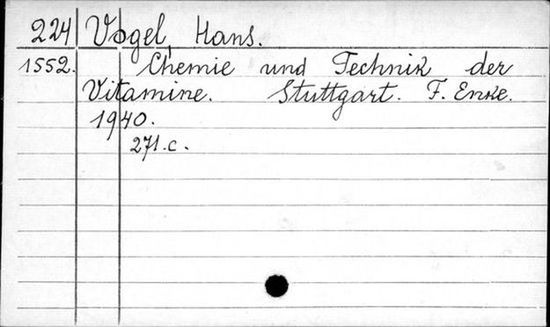 224 Vogel, Hans.
1552. Chemie und Technik der
Vitamine. Stuttgart. F. Enke.
1940.
271.c.